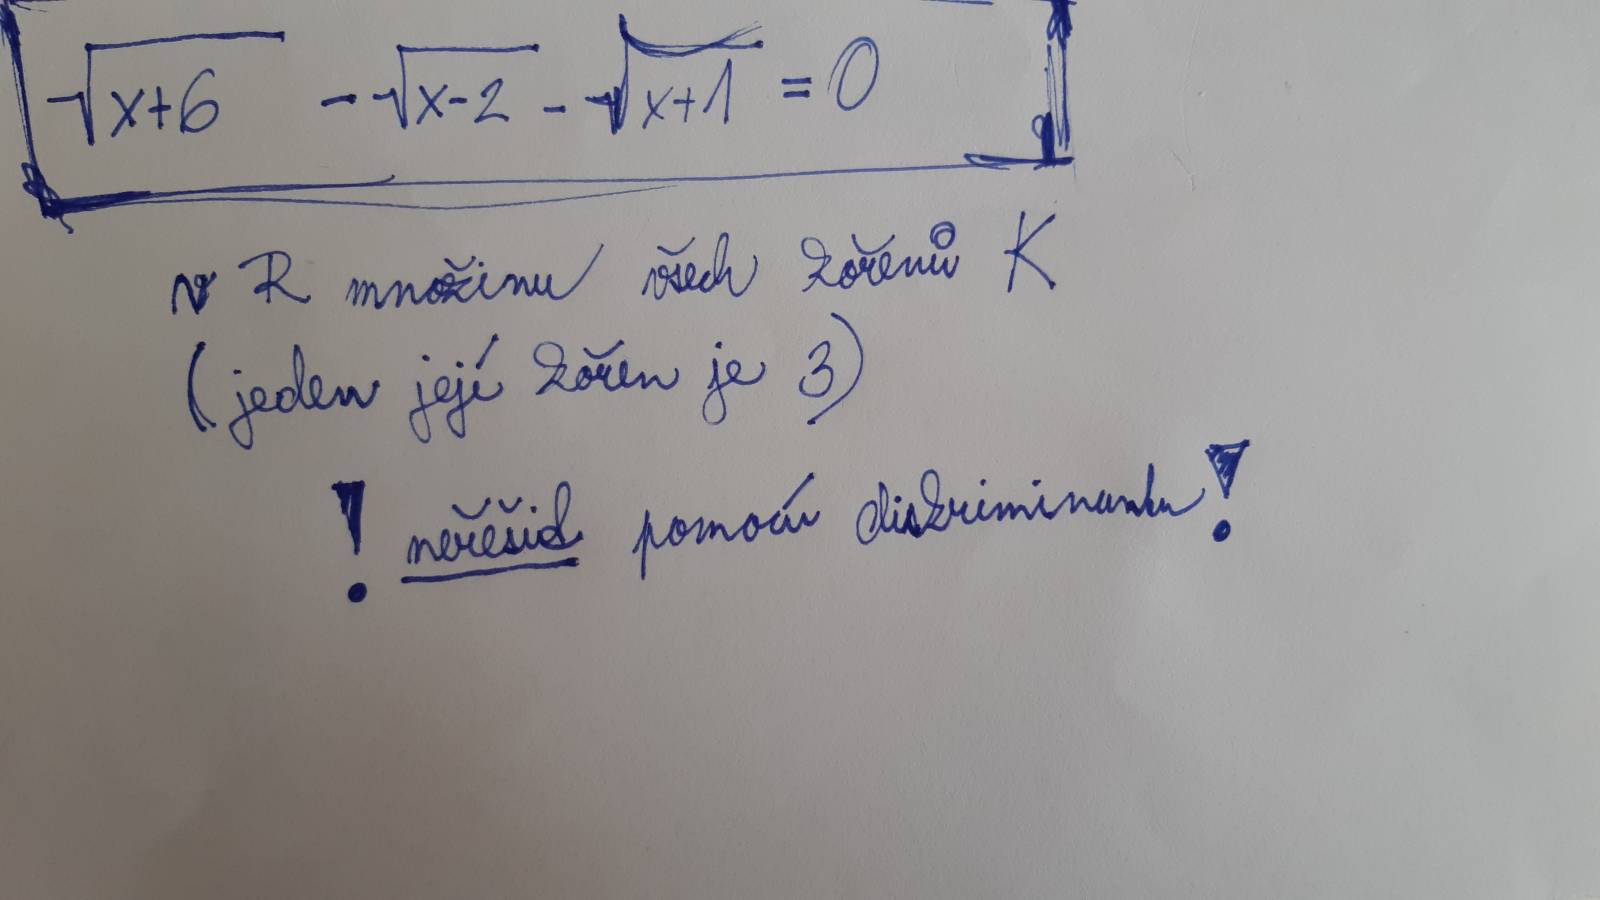 √x+6 - √x-2 - √x+1 = 0
v R množinu všech kořenů K
(jeden její kořen je 3)
! neřešit pomocí diskriminantu !